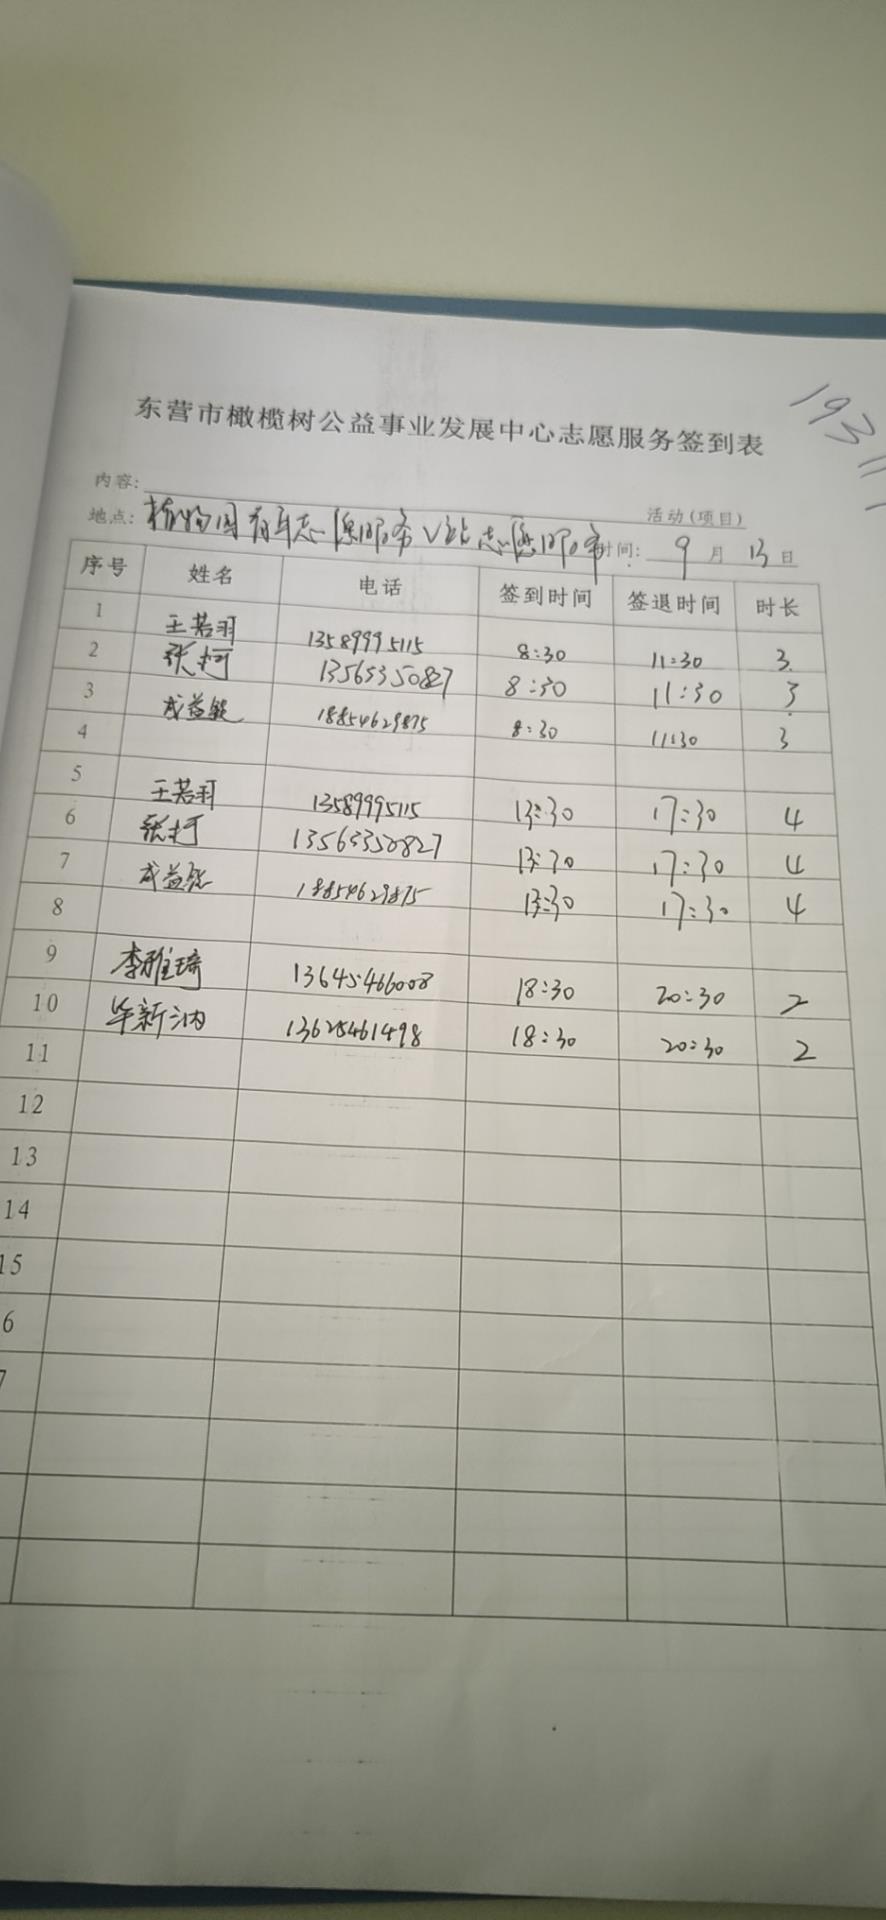 东营市橄榄树公益事业发展中心志愿服务签到表
193
内容: 活动(项目)
地点: 植物园青年志愿服务V站志愿服务 时间: 9 月 13 日
序号 姓名 电话 签到时间 签退时间 时长
1 王若羽 13589995115 8:30 11:30 3
2 张柯 13563350827 8:30 11:30 3
3 成益 18854629875 8:30 11:30 3
4
5 王若羽 13589995115 13:30 17:30 4
6 张柯 13563350827 13:30 17:30 4
7 成益 18854629875 13:30 17:30 4
8
9 李雅琦 13645466008 18:30 20:30 2
10 毕新汭 13625461498 18:30 20:30 2
11
12
13
14
15
6
7